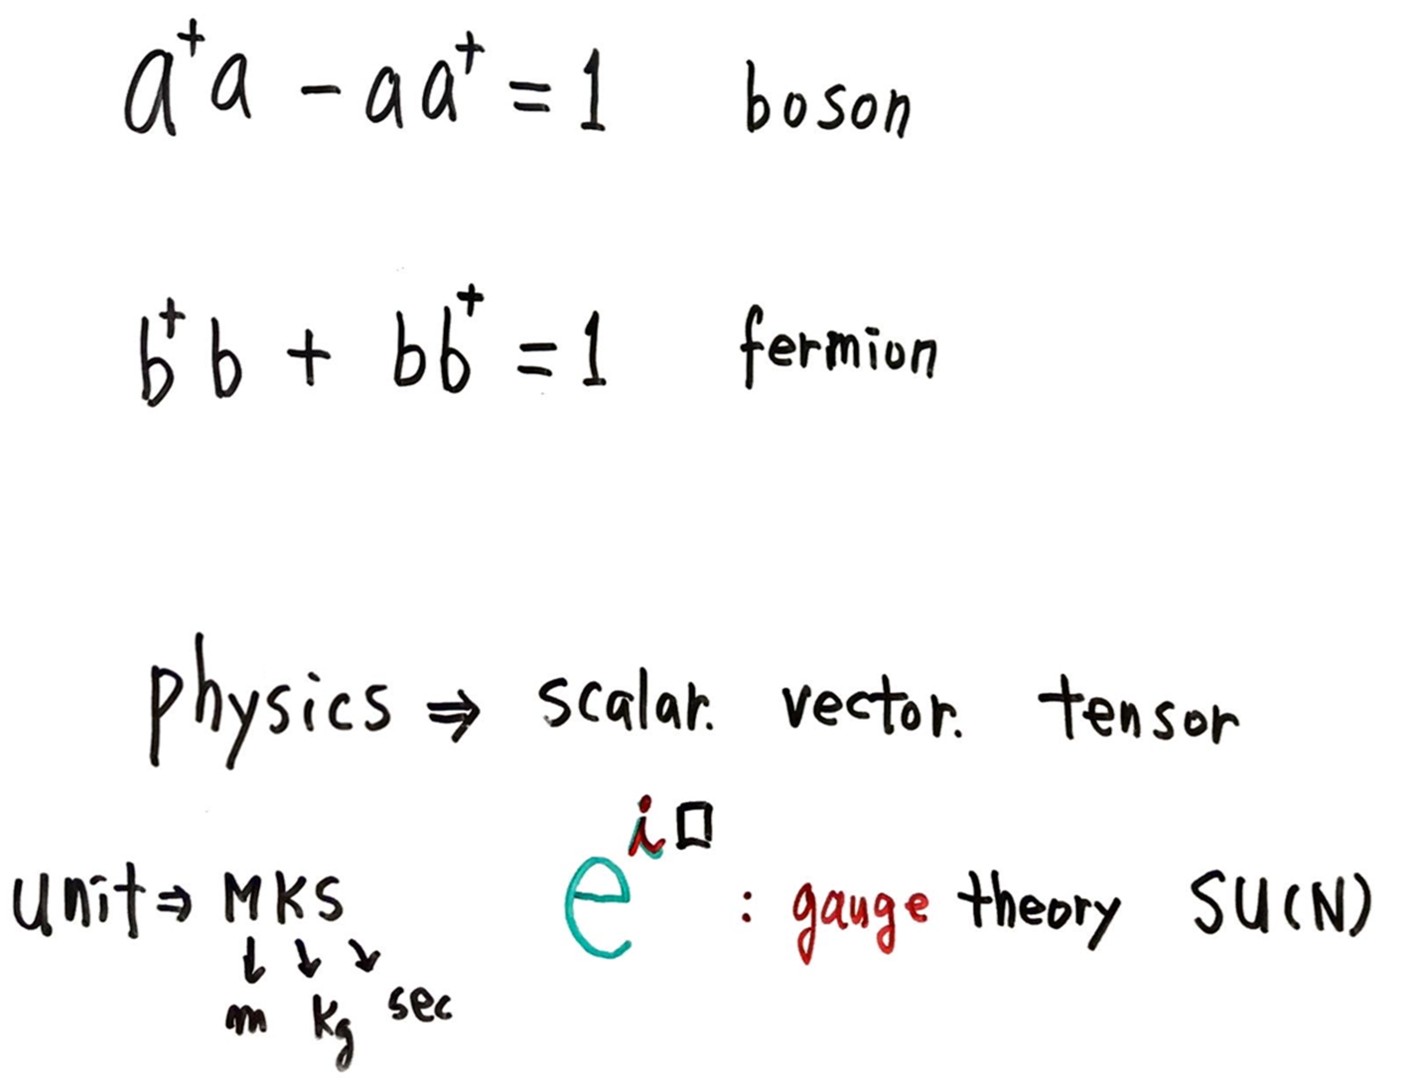 a⁺a - aa⁺ = 1 boson
b⁺b + bb⁺ = 1 fermion
physics ⇒ scalar. vector. tensor
unit ⇒ MKS
↓ ↓ ↘
m kg sec
e^{i□} : gauge theory SU(N)